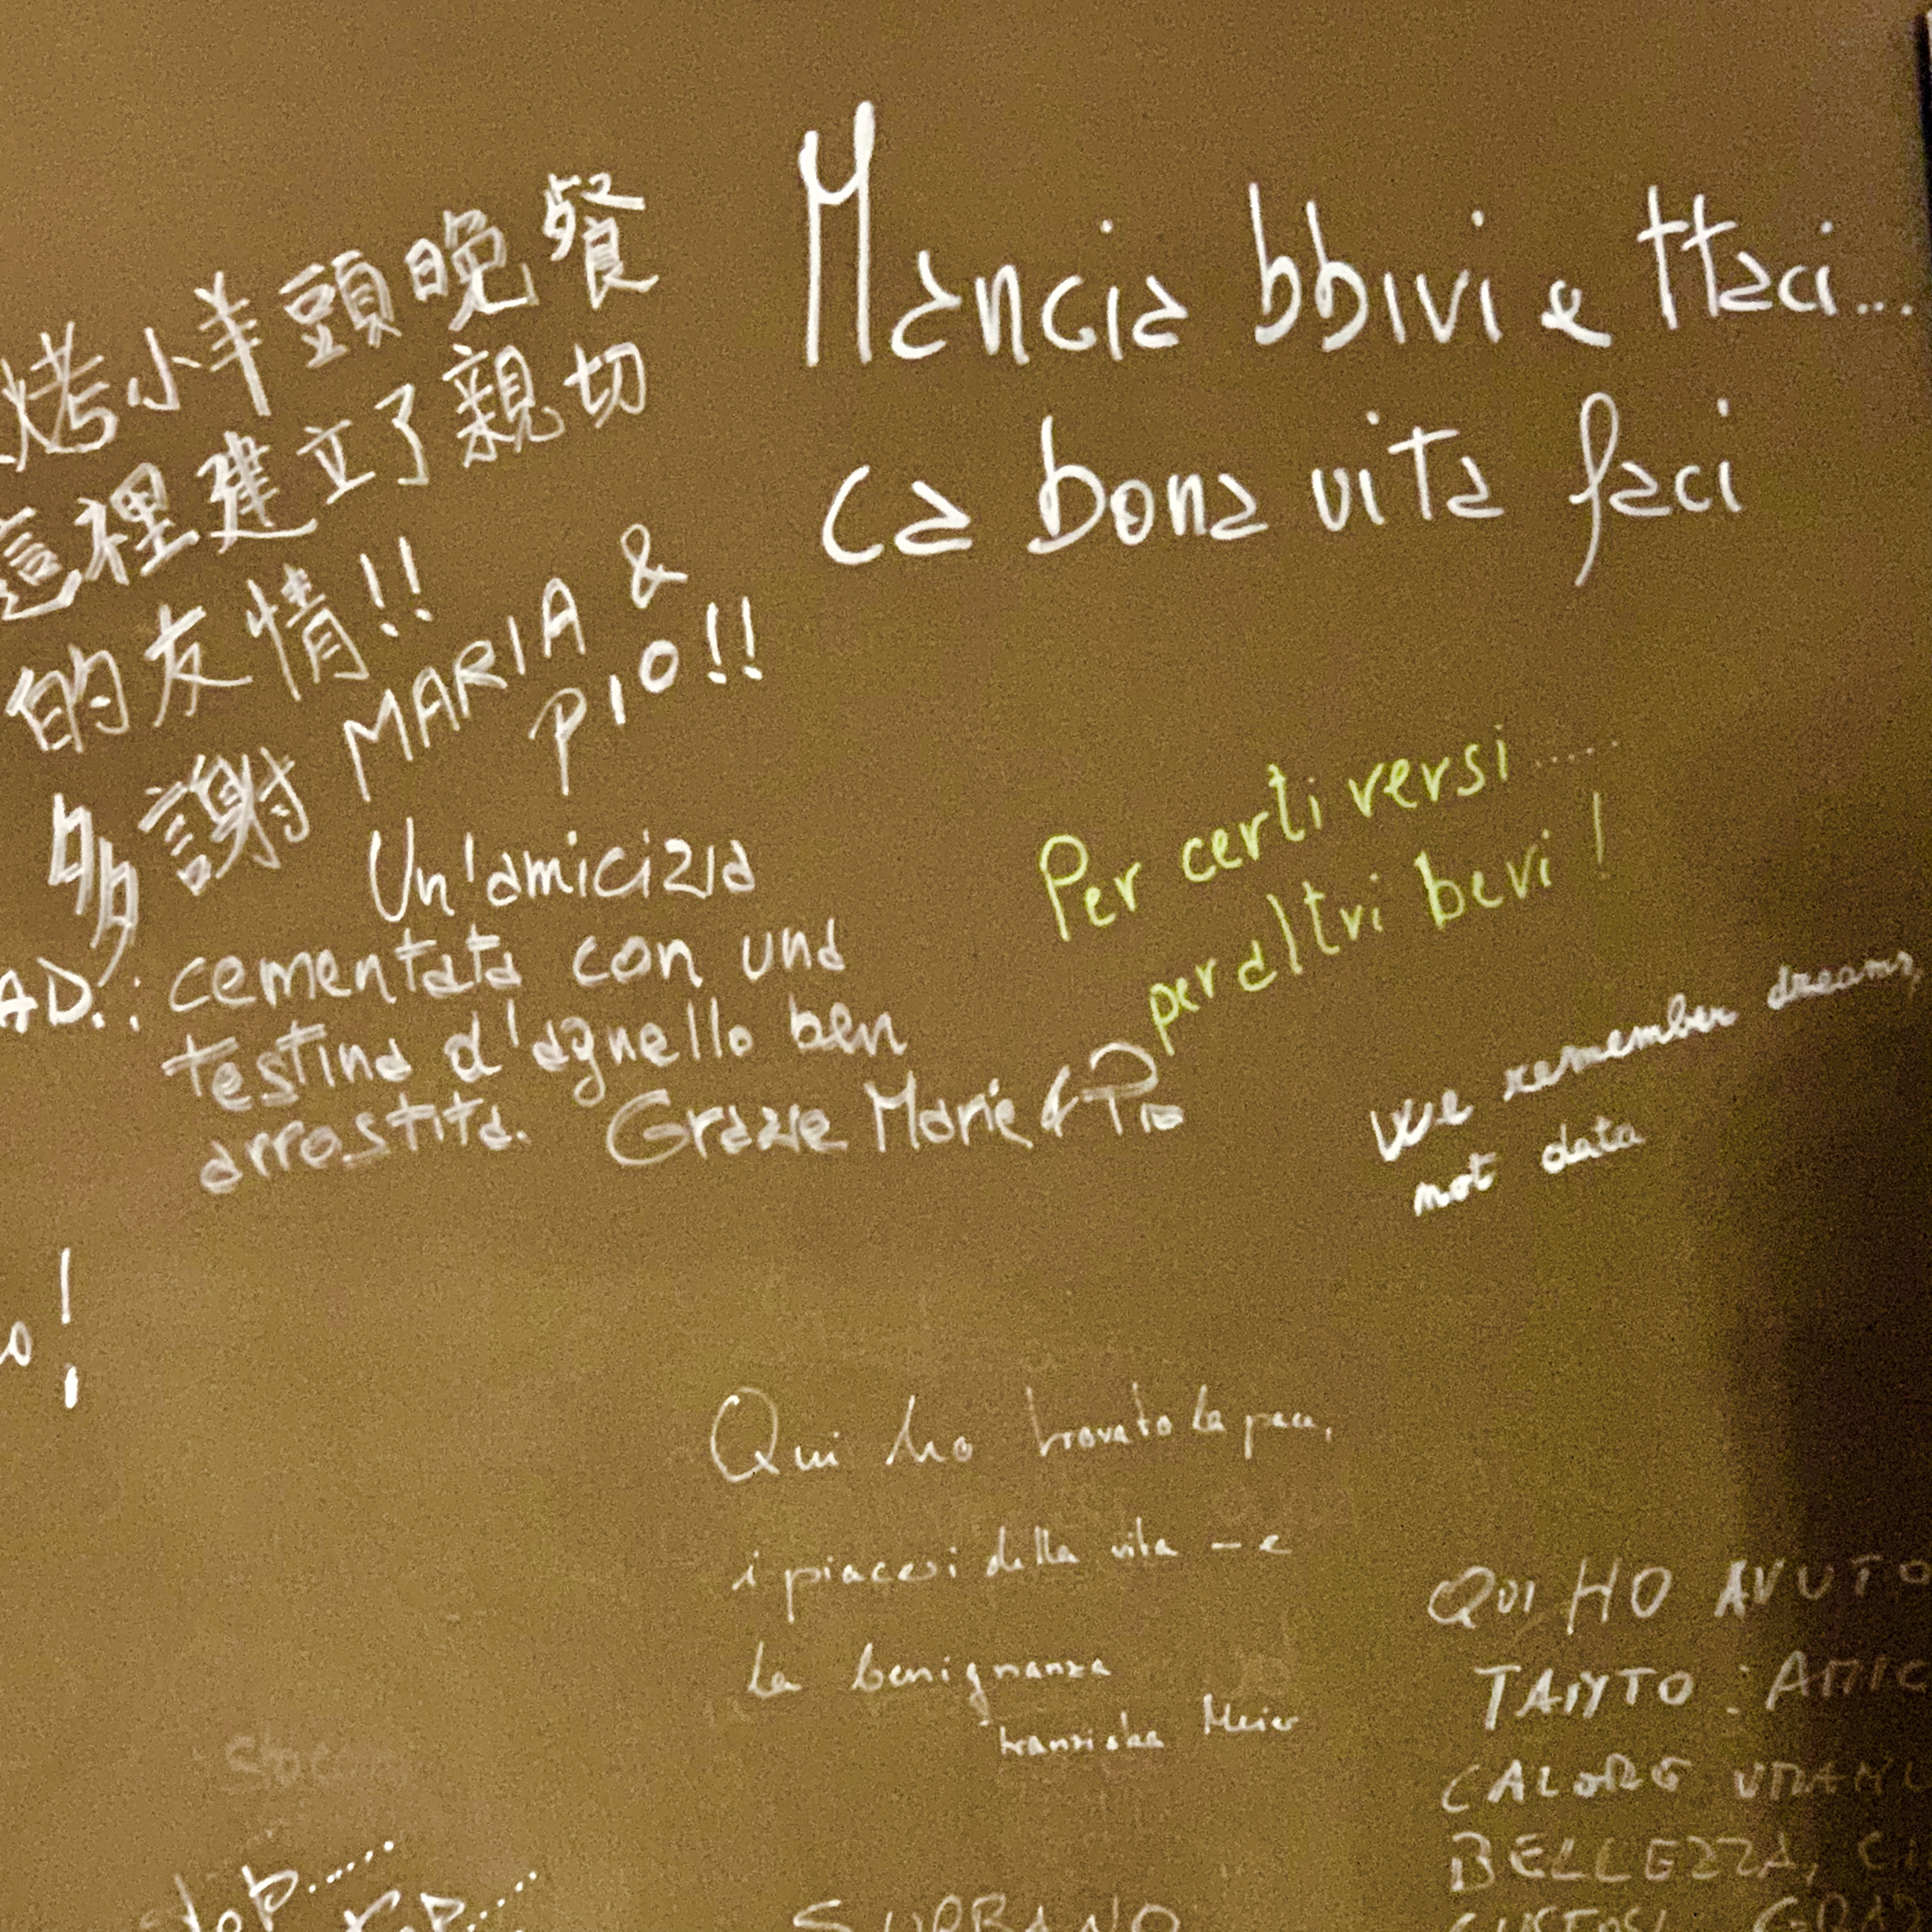 烤小羊頭晚餐
這裡建立了親切
的友情!!
多謝 MARIA &
PIO!!
Mancia bbivi e ttaci...
ca bona vita faci
Un'amicizia
AD.: cementata con una
testina d'agnello ben
arrostita. Grazie Marie & Pio
Per certi versi......
per altri bevi!
We remember dreams,
not data
o!
Qui ho trovato la pace,
i piaceri della vita - e
la benignanza
Meier
QUI HO AVUTO
TANTO: AMIC
CALORE UMAN
BELLEZZA, CI
SUPRANO